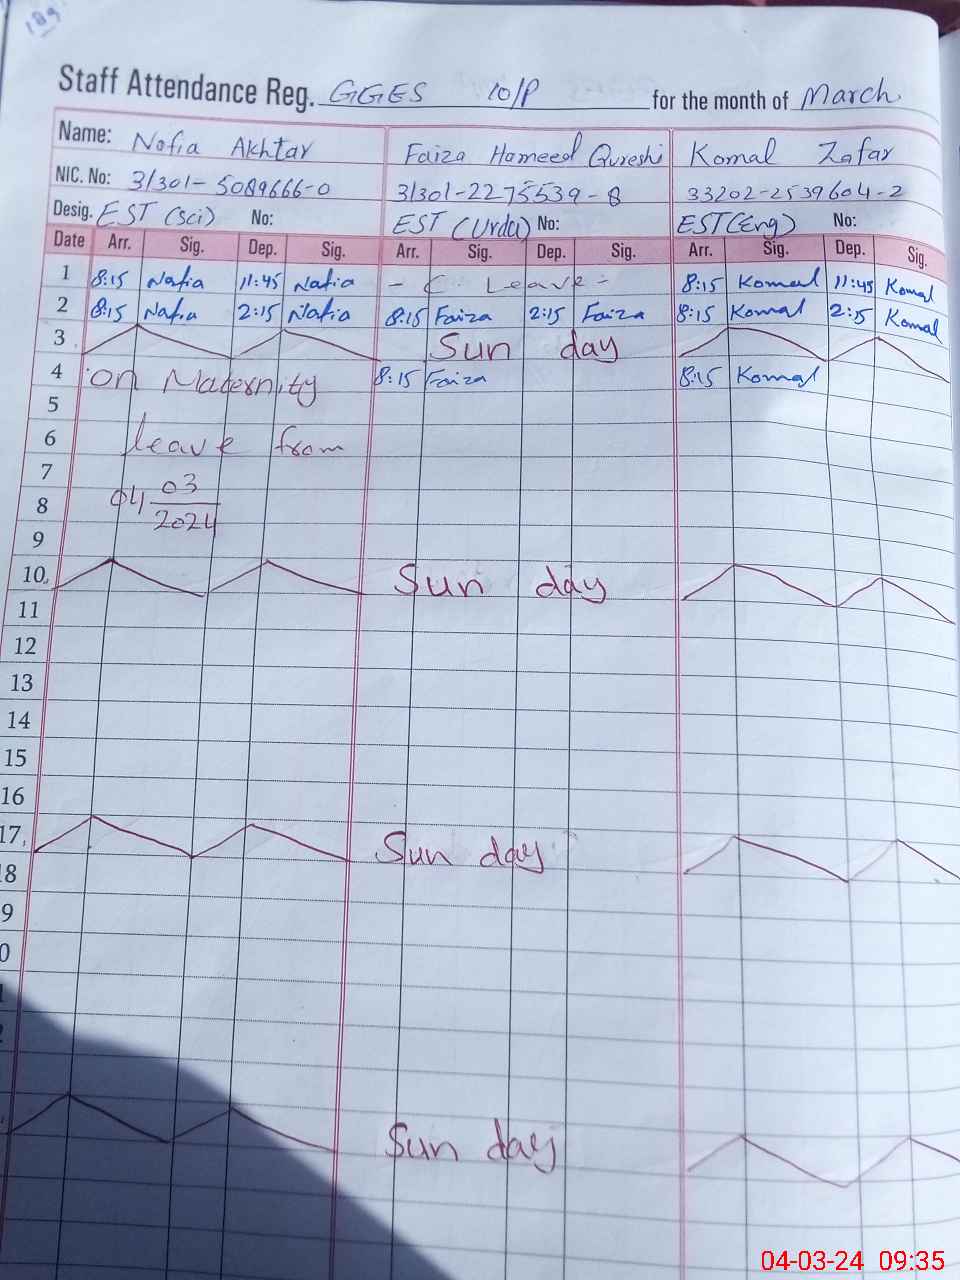 189
Staff Attendance Reg. GGES 10/P for the month of March
Name: Nafia Akhtar Faiza Hameed Qureshi Komal Zafar
NIC. No: 31301-5089666-0 31301-2275539-8 33202-2539604-2
Desig. EST (Sci) No: EST (Urdu) No: EST (Eng) No:
Date Arr. Sig. Dep. Sig. Arr. Sig. Dep. Sig. Arr. Sig. Dep. Sig.
1 8:15 Nafia 11:45 Nafia - C. Leave - 8:15 Komal 11:45 Komal
2 8:15 Nafia 2:15 Nafia 8:15 Faiza 2:15 Faiza 8:15 Komal 2:15 Komal
3 Sun day
4 on Maternity 8:15 Faiza 8:15 Komal
5
6 leave from
7
8 04 03/2024
9
10 Sun day
11
12
13
14
15
16
17 Sun day
18
9
0
Sun day
04-03-24 09:35